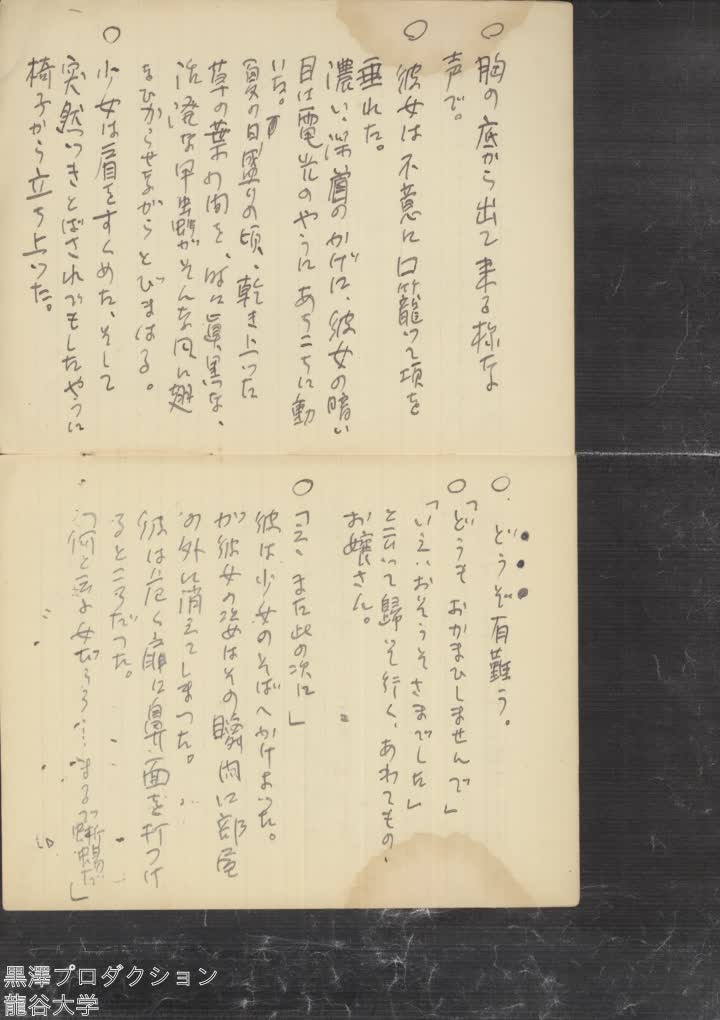 ○胸の底から出て来る様な
声で。
○彼女は不意に口籠って項を
垂れた。
濃い、深い眉のかげに、彼女の暗い
目は電光のやうにあちこちに動
いた。
夏の日盛りの頃、乾き上った
草の葉の間を、時に真黒な、
活溌な甲虫がそんな風に翅
をひからせながらとびまはる。
○少女は肩をすくめた、そして
突然つきとばされでもしたやうに
椅子から立ち上った。
○どうぞ有難う。
○「どうもおかまひしませんで」
「いえ、おそうそさまでした」
と云って帰って行く、あわてもの、
お嬢さん。
○「え、また此の次に」
彼は少女のそばへかけよった。
が彼女の姿はその瞬間に部屋
の外に消えてしまった。
彼は危く扉に鼻面を打つけ
るところだった。
「何と云ふ女だらう…まるで蜥蜴だ」
黒澤プロダクション
龍谷大学